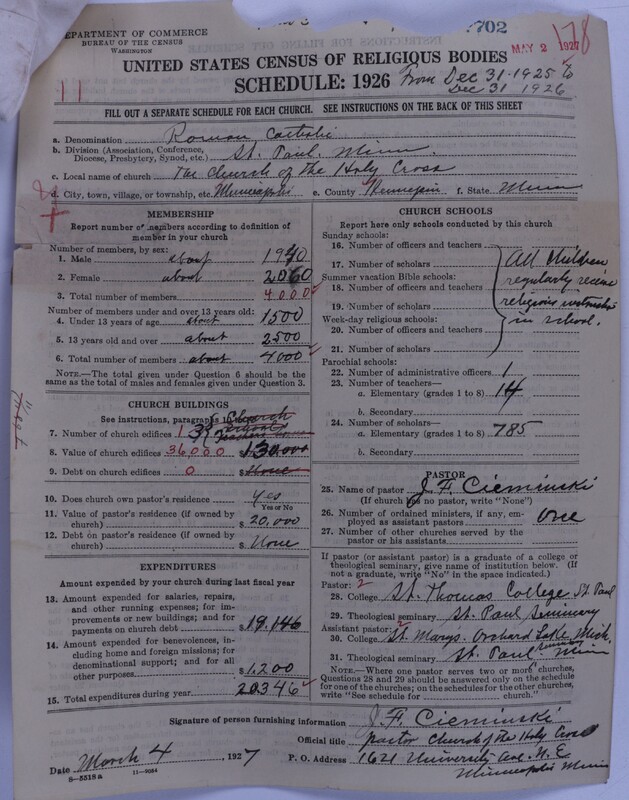 DEPARTMENT OF COMMERCE
BUREAU OF THE CENSUS
WASHINGTON
702
MAY 2 1927
178
UNITED STATES CENSUS OF RELIGIOUS BODIES
SCHEDULE: 1926 From Dec 31-1925 to
Dec 31 1926
11
FILL OUT A SEPARATE SCHEDULE FOR EACH CHURCH. SEE INSTRUCTIONS ON THE BACK OF THIS SHEET
a. Denomination Roman Catholic
b. Division (Association, Conference, Diocese, Presbytery, Synod, etc.) St. Paul. Minn
c. Local name of church The Church of the Holy Cross
d. City, town, village, or township, etc. Minneapolis e. County Hennepin f. State Minn
MEMBERSHIP
Report number of members according to definition of
member in your church
Number of members, by sex:
1. Male about 1940
2. Female about 2060
3. Total number of members 4000
Number of members under and over 13 years old:
4. Under 13 years of age about 1500
5. 13 years old and over about 2500
6. Total number of members about 4000
NOTE.—The total given under Question 6 should be
the same as the total of males and females given under Question 3.
CHURCH BUILDINGS
See instructions, paragraphs
Church
School
7. Number of church edifices 1 3
8. Value of church edifices 36,000 $ 130,000
9. Debt on church edifices 0 $ None
10. Does church own pastor's residence Yes
Yes or No
11. Value of pastor's residence (if owned by
church) $ 20,000
12. Debt on pastor's residence (if owned by
church) $ None
EXPENDITURES
Amount expended by your church during last fiscal year
13. Amount expended for salaries, repairs,
and other running expenses; for im-
provements or new buildings; and for
payments on church debt $ 19,146
14. Amount expended for benevolences, in-
cluding home and foreign missions; for
denominational support; and for all
other purposes $ 1,200
15. Total expenditures during year 20346
CHURCH SCHOOLS
Report here only schools conducted by this church
Sunday schools:
16. Number of officers and teachers
17. Number of scholars
Summer vacation Bible schools:
18. Number of officers and teachers
19. Number of scholars
Week-day religious schools:
20. Number of officers and teachers
21. Number of scholars
All children
regularly receive
religious instruction
in school.
Parochial schools:
22. Number of administrative officers 1
23. Number of teachers—
a. Elementary (grades 1 to 8) 14
b. Secondary
24. Number of scholars—
a. Elementary (grades 1 to 8) 785
b. Secondary
PASTOR
25. Name of pastor J. F. Cieminski
(If church has no pastor, write "None")
26. Number of ordained ministers, if any, em-
ployed as assistant pastors one
27. Number of other churches served by the
pastor or his assistants
If pastor (or assistant pastor) is a graduate of a college or
theological seminary, give name of institution below. (If
not a graduate, write "No" in the space indicated.)
Pastor: 2
28. College St. Thomas College St. Paul
29. Theological seminary St. Paul Seminary
Assistant pastor: 2
30. College St. Marys. Orchard Lake Mich.
31. Theological seminary St. Paul Seminary Minn
NOTE.—Where one pastor serves two or more churches,
Questions 28 and 29 should be answered only on the schedule
for one of the churches; on the schedules for the other churches,
write "See schedule for church."
Signature of person furnishing information J. F. Cieminski
Official title pastor Church of the Holy Cross
Date March 4, 1927 P. O. Address 1621 University Ave. N. E
Minneapolis Minn
8-5518a 11-9084